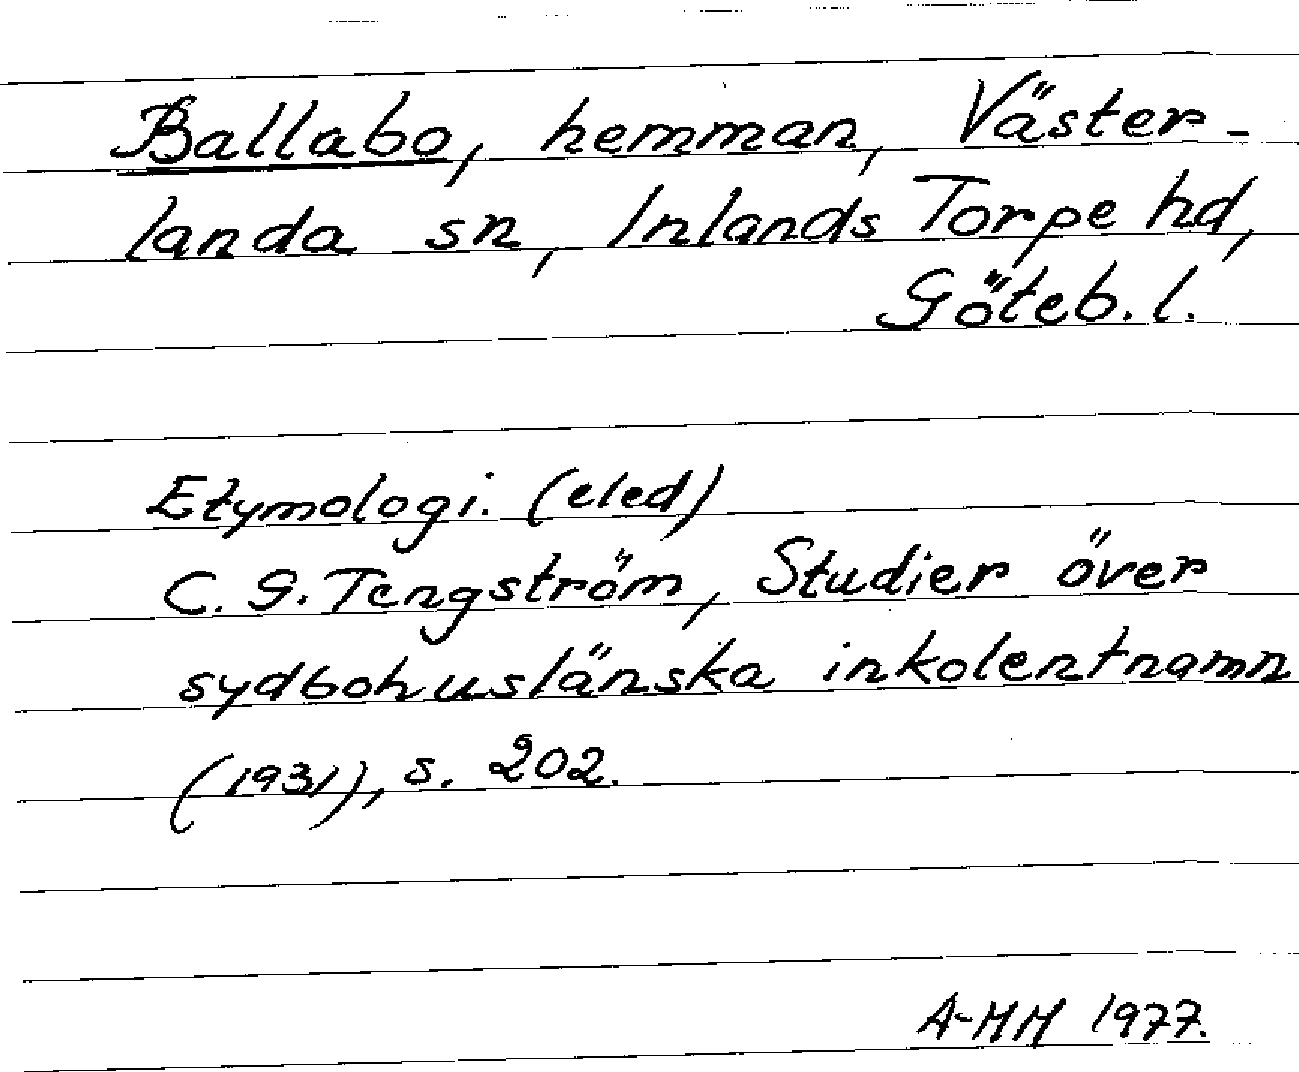 Ballabo, hemman, Väster-
landa sn, Inlands Torpe hd,
Göteb. l.
Etymologi. (eled)
C. G. Tengström, Studier över
sydbohuslänska inkolentnamn
(1931), s. 202.
A-MM 1977.